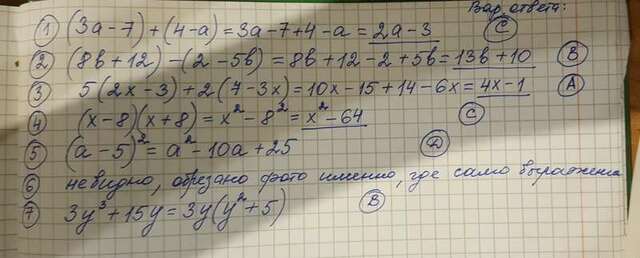 Вар. ответа:
① (3a-7)+(4-a)=3a-7+4-a=2a-3 Ⓒ
② (8b+12)-(2-5b)=8b+12-2+5b=13b+10 Ⓑ
③ 5(2x-3)+2(7-3x)=10x-15+14-6x=4x-1 Ⓐ
④ (x-8)(x+8)=x²-8²=x²-64 Ⓒ
⑤ (a-5)²=a²-10a+25 Ⓓ
⑥ невидно, обрезано фото именно, где само выражение
⑦ 3y³+15y=3y(y²+5) Ⓑ